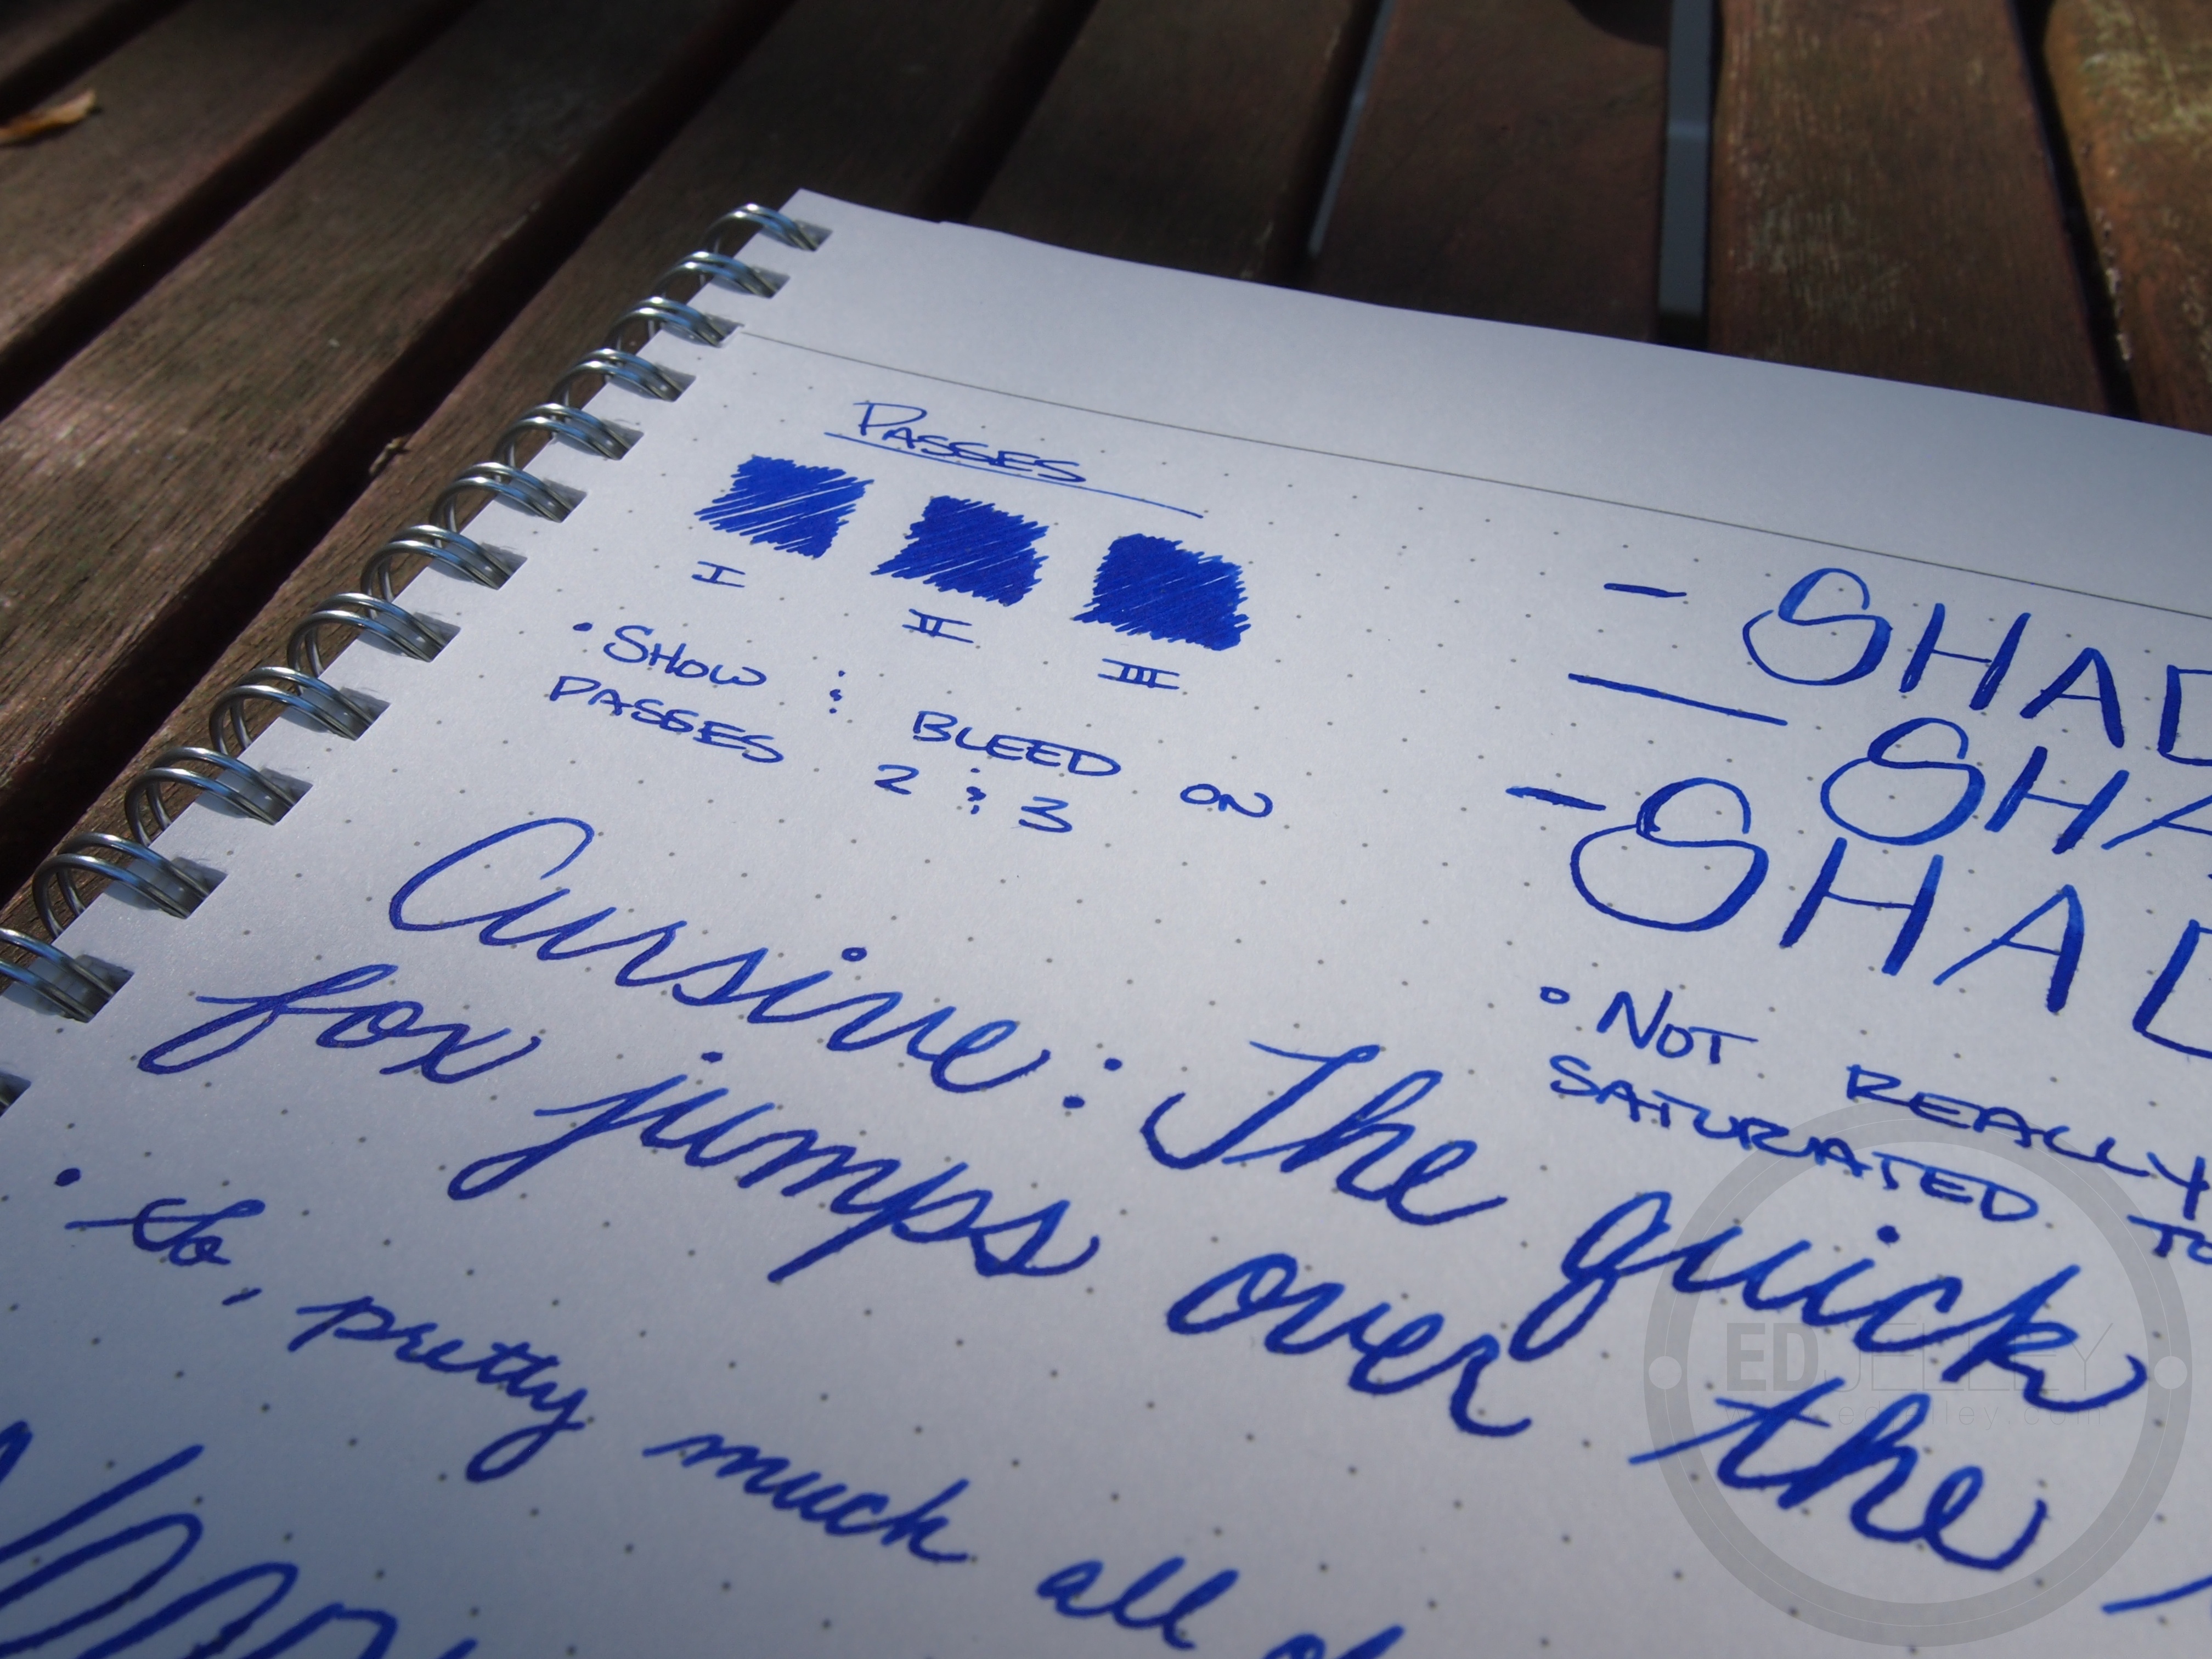 PASSES
I II III
• SHOW & BLEED ON
PASSES 2 & 3
- SHAD
— SHA
- SHAD
• NOT REALLY
SATURATED TO
Cursive: The quick
fox jumps over the
• So, pretty much all
EDJELLEY
edjelley.com